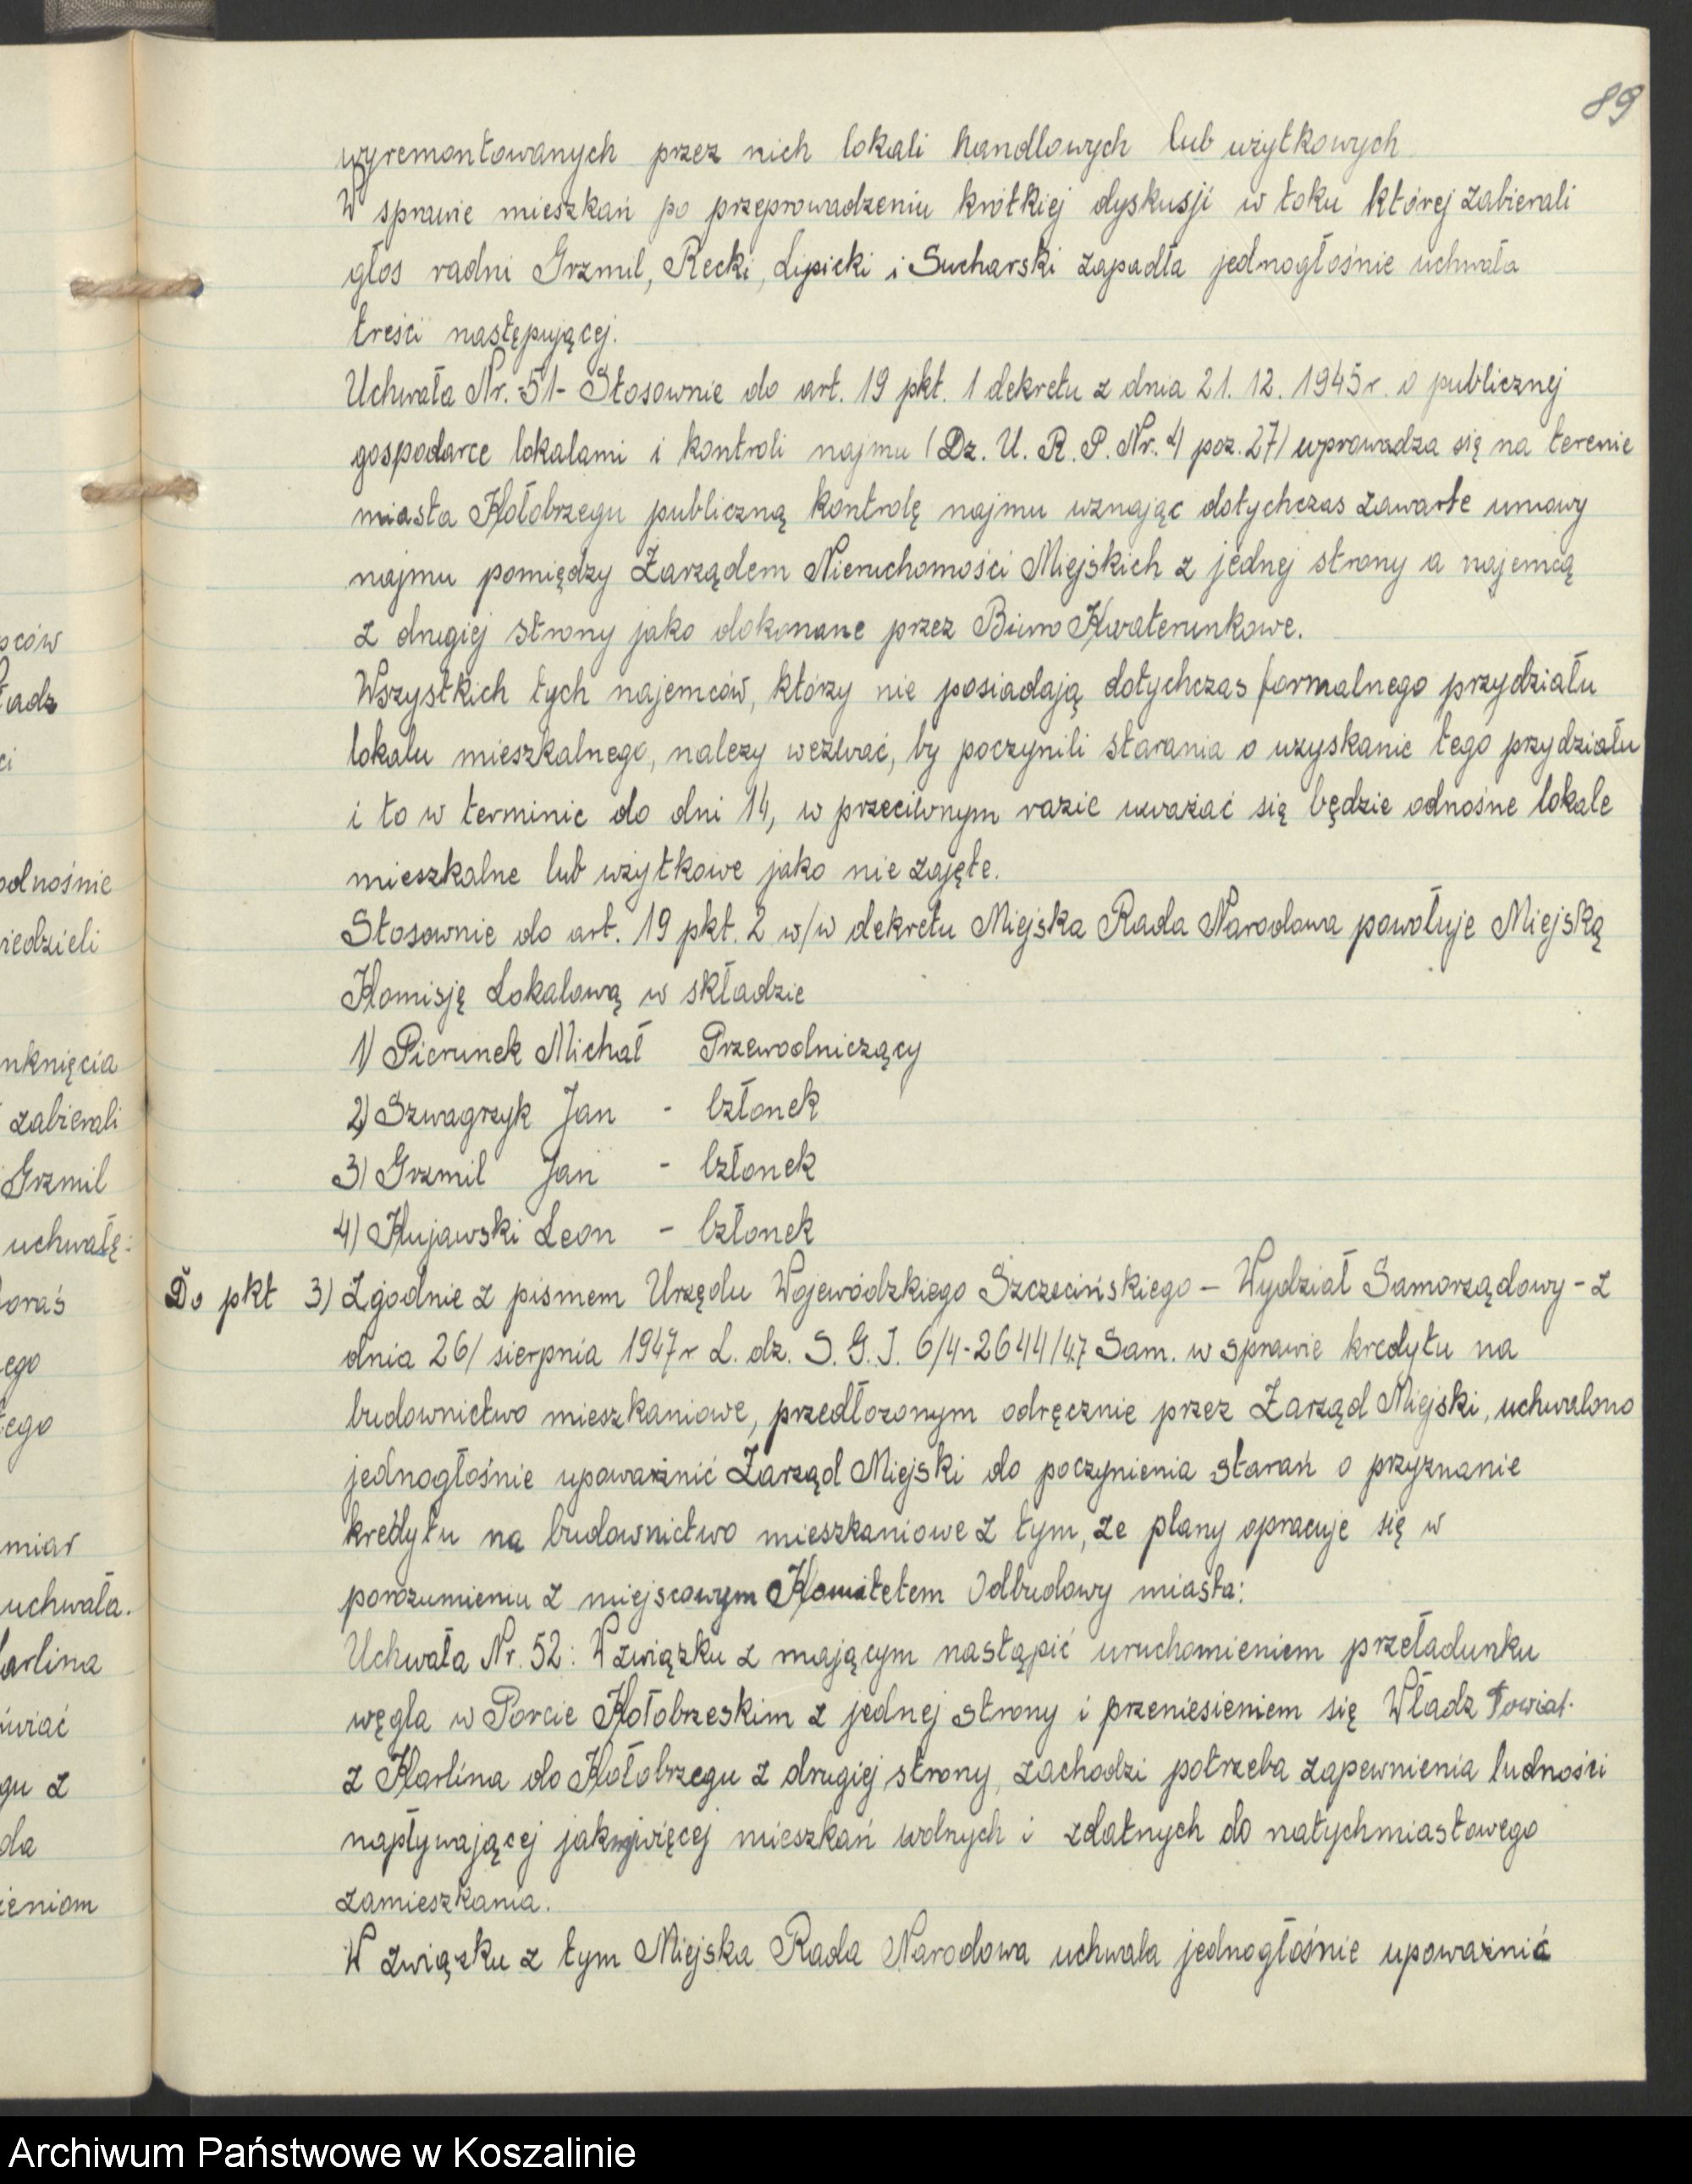 89
wyremontowanych przez nich lokali handlowych lub użytkowych
W sprawie mieszkań po przeprowadzeniu krótkiej dyskusji w toku której zabierali
głos radni Grzmil, Recki, Lipicki i Sucharski zapadła jednogłośnie uchwała
treści następującej.
Uchwała Nr. 51- Stosownie do art. 19 pkt. 1 dekretu z dnia 21. 12. 1945 r. o publicznej
gospodarce lokalami i kontroli najmu (Dz. U. R. P. Nr. 4 poz. 27) wprowadza się na terenie
miasta Kołobrzegu publiczną kontrolę najmu uznając dotychczas zawarte umowy
najmu pomiędzy Zarządem Nieruchomości Miejskich z jednej strony a najemcą
z drugiej strony jako dokonane przez Biuro Kwaterunkowe.
Wszystkich tych najemców, którzy nie posiadają dotychczas formalnego przydziału
lokalu mieszkalnego, nalezy wezwać, by poczynili starania o uzyskanie tego przydziału
i to w terminie do dni 14, w przeciwnym razie uważać się będzie odnośne lokale
mieszkalne lub użytkowe jako nie zajęte.
Stosownie do art. 19 pkt. 2 w/w dekretu Miejska Rada Narodowa powołuje Miejską
Komisję Lokalową w składzie
1) Pierunek Michał Przewodniczący
2) Szwagrzyk Jan - Członek
3) Grzmil Jan - Członek
4) Kujawski Leon - Członek
Do pkt 3) Zgodnie z pismem Urzędu Wojewódzkiego Szczecińskiego – Wydział Samorządowy - z
dnia 26/ sierpnia 1947 r L. dz. S. G. I. 6/4-2644/47 Sam. w sprawie kredytu na
budownictwo mieszkaniowe, przedłozonym odręcznie przez Zarząd Miejski, uchwalono
jednogłośnie upoważnić Zarząd Miejski do poczynienia starań o przyznanie
kredytu na budownictwo mieszkaniowe z tym, ze plany opracuje się w
porozumieniu z miejscowym Komitetem Odbudowy miasta:
Uchwała Nr. 52: W związku z mającym nastąpić uruchomieniem przeładunku
węgla w Porcie Kołobrzeskim z jednej strony i przeniesieniem się Władz Powiat.
z Karlina do Kołobrzegu z drugiej strony, zachodzi potrzeba zapewnienia ludności
napływającej jaknajwięcej mieszkań wolnych i zdatnych do natychmiastowego
zamieszkania.
W związku z tym Miejska Rada Narodowa uchwala jednogłośnie upoważnić
Archiwum Państwowe w Koszalinie